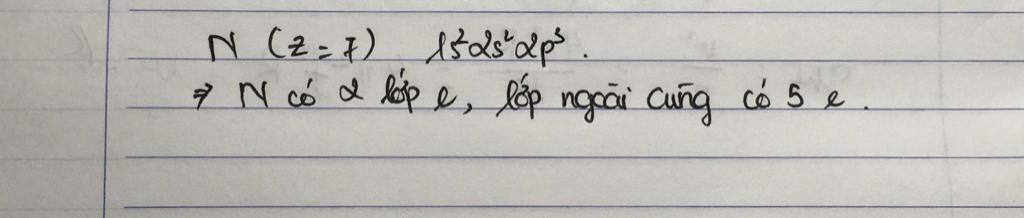 N (Z = 7) 1s²2s²2p³.
⇒ N có 2 lớp e, lớp ngoài cùng có 5 e.